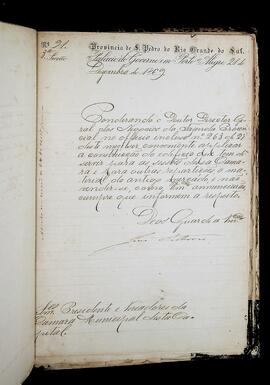 Nº 91.
Provincia de S. Pedro do Rio Grande do Sul.
2ª Secção Palacio do Governo em Porto Alegre, 21 de
Dezembro de 1869
Ponderando o Doutor Director Ge
ral dos Negocios da Fazenda Provin
cial no officio incluso nº 263 de 21
deste mez ser conveniente applicar
a construcção do edificio que tem de
servir para as sessões dessa Cama
ra e para outras repartições o ma
terial do antigo mercado e não
vender-se, como tem annunciado,
cumpre que informem a respeito.
Deos Guarde a Vmces
Snrs. Presidente e Vereadores da
Camara Municipal desta Ca
pital.